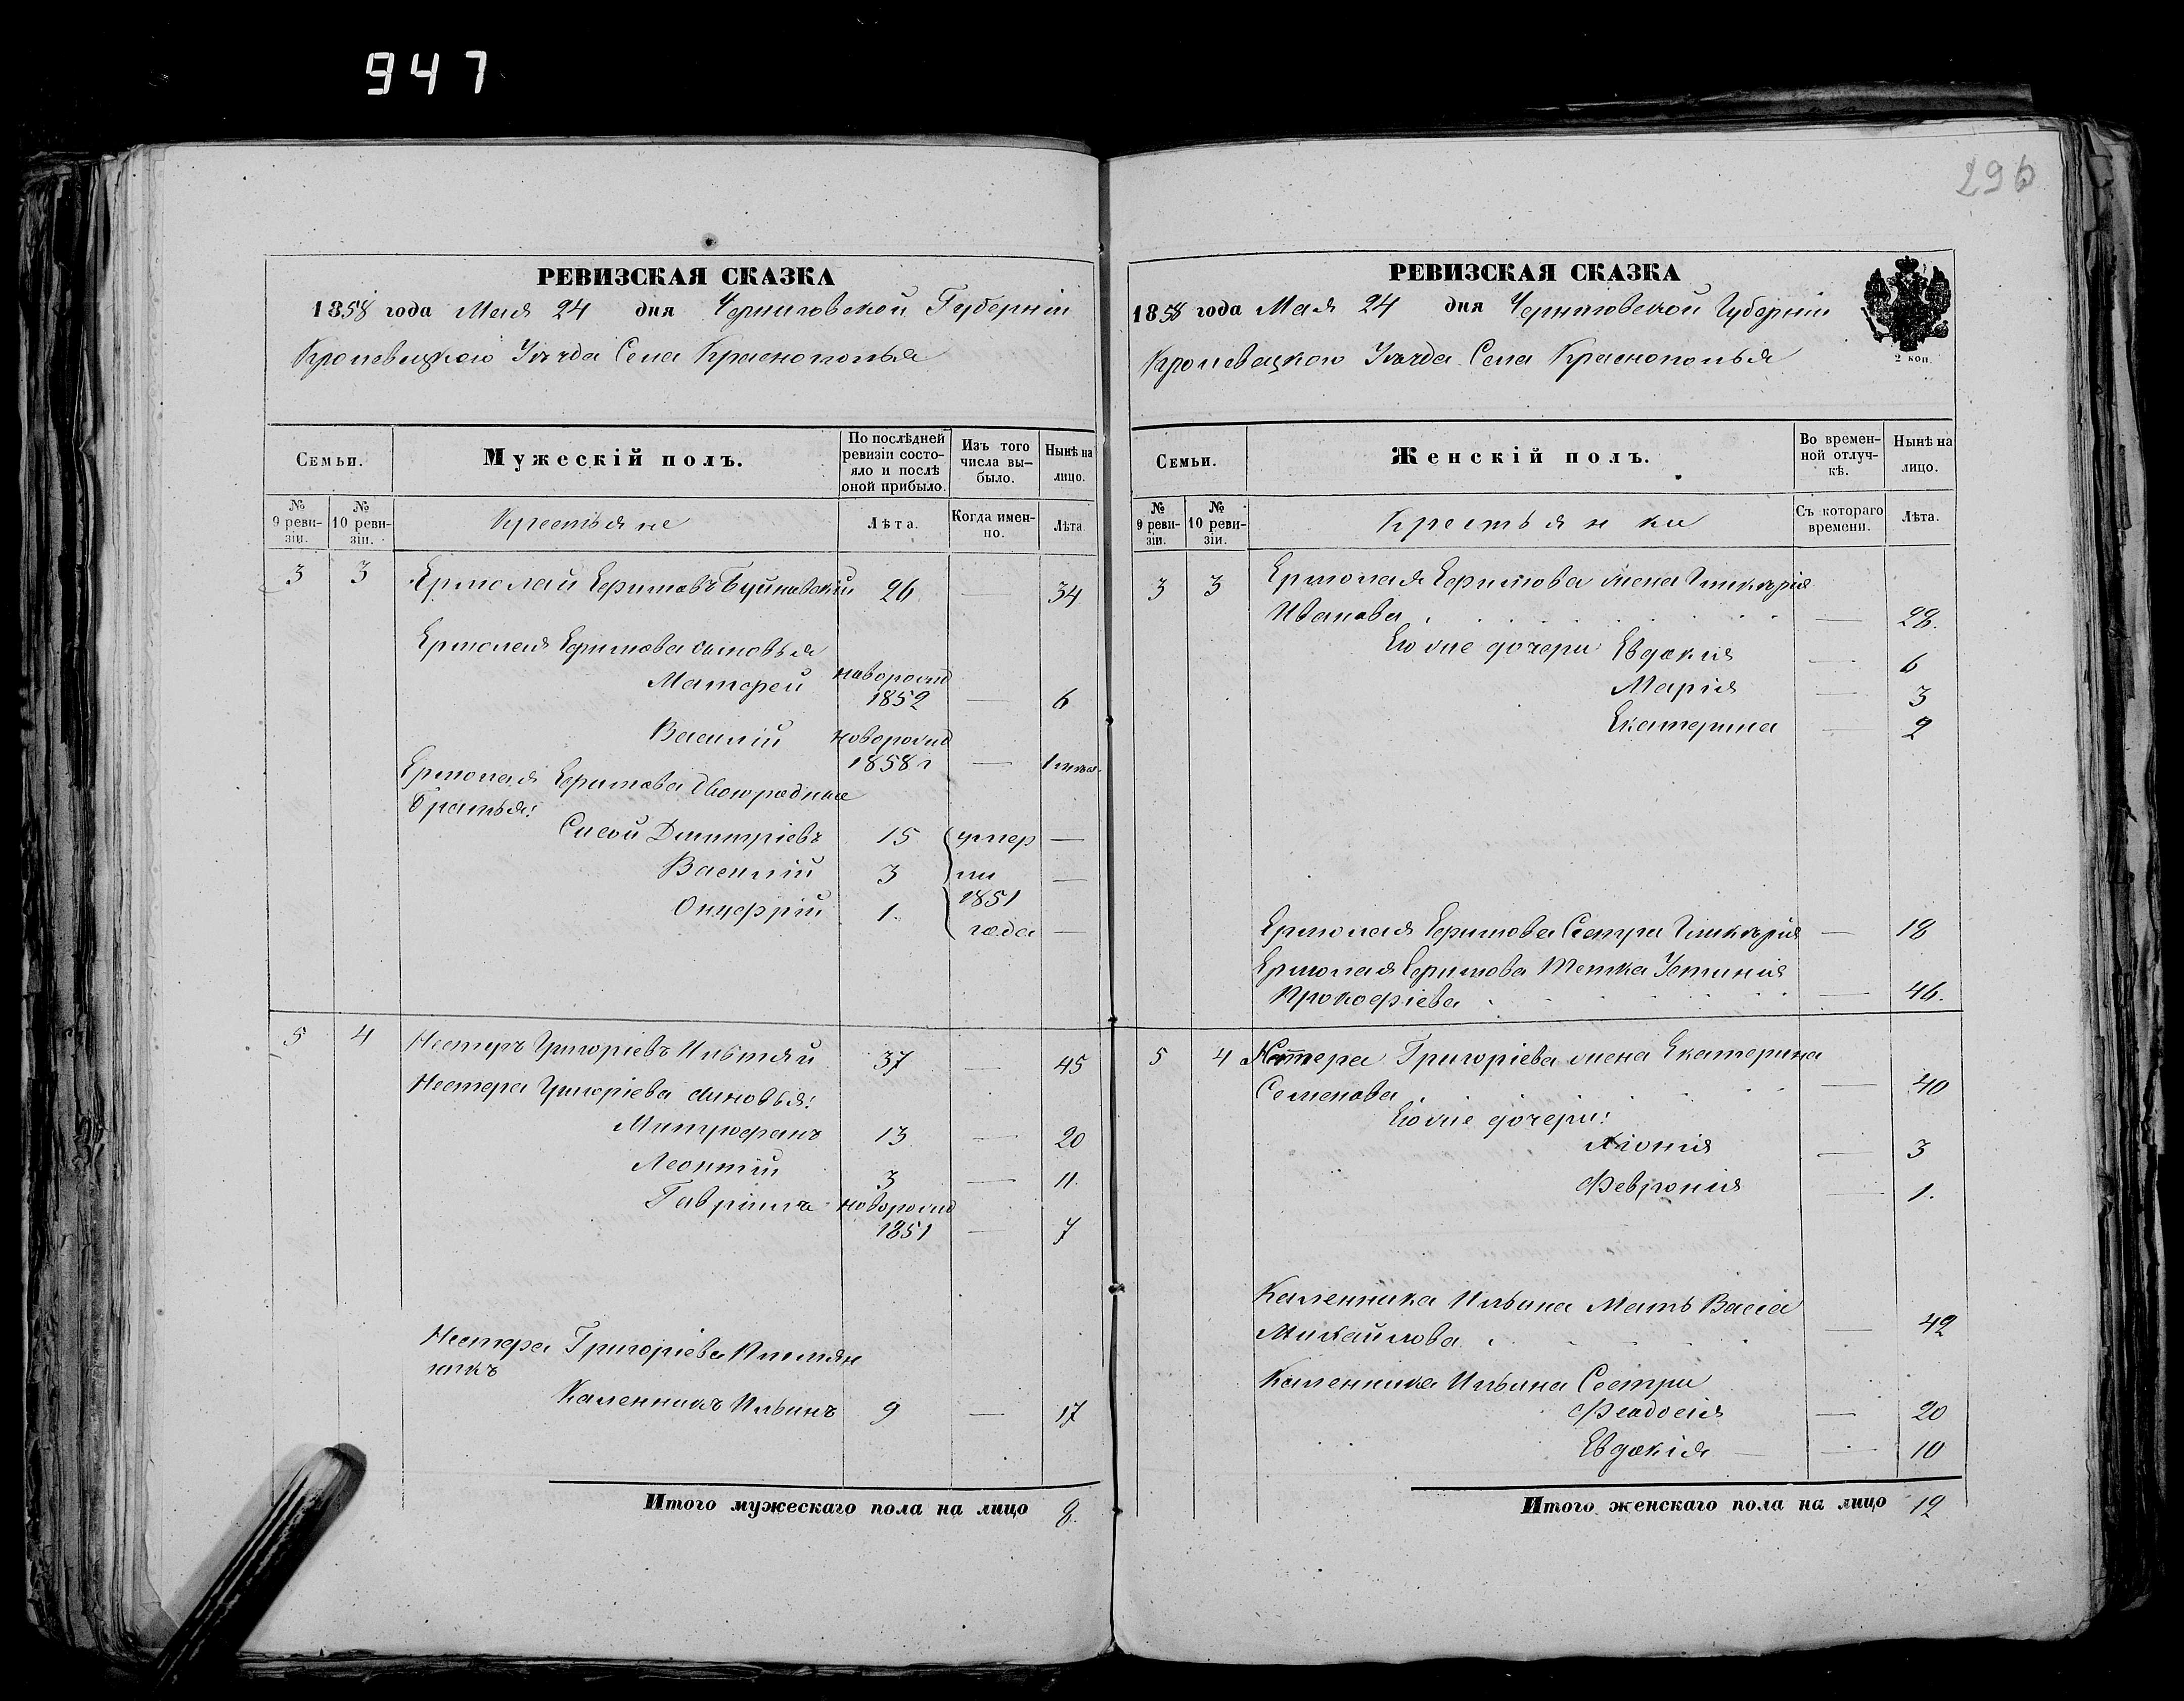 947
296
РЕВИЗСКАЯ СКАЗКА
1858 года Мая 24 дня Черниговской Губерніи
Кролевецкого Уѣзда Села Краснополья
Семьи.
Мужескій полъ.
По послѣдней ревизіи состояло и послѣ оной прибыло.
Изъ того числа вы-было.
Нынѣ на лицо.
№ 9 реви-зіи.
№ 10 реви-зіи.
Крестьяне
Лѣта.
Когда имен-но.
Лѣта.
3 3 Ермолай Ефимовъ Буйновскій 26 — 34
Ермолая Ефимова сыновья
Матфей новорожд 1852 — 6
Василій новорожд 1858 г —
Ермолая Ефимова двоюродные
братья:
Сисой Дмитріевъ 15 умер —
Василій 3 ли —
Онуфрій 1. 1851 года —
5 4 Нестеръ Григоріевъ 37 — 45
Нестера Григоріева сыновья:
Митрофанъ 13 — 20
Леонтій 3 — 11.
Гавріилъ новорожд 1851 — 7
Нестера Григоріева Племян
никъ
Каленникъ Ильинъ 9 — 17
Итого мужескаго пола на лицо 8.
РЕВИЗСКАЯ СКАЗКА
1858 года Мая 24 дня Черниговской Губерніи
Кролевецкого Уѣзда Села Краснополья
2 коп.
Семьи.
Женскій полъ.
Во времен-ной отлуч-кѣ.
Нынѣ на лицо.
№ 9 реви-зіи.
№ 10 реви-зіи.
Крестьянки
Съ котораго времени.
Лѣта.
3 3 Ермолая Ефимова жена Гликерія
Иванова — 28.
Его же дочери Евдокия — 6
Марія — 3
Екатерина — 2
Ермолая Ефимова Сестра Гликерія — 18
Ермолая Ефимова Тетка Устинія
Прокофіева — 46.
5 4 Нестера Григоріева жена Екатерина
Семенова — 40
Его же дочери:
Хіонія — 3
Феврония — 1.
Каленника Ильина Мать Васса
Михайлова — 42
Каленника Ильина Сестры
Феодосія — 20
Евдокія — 10
Итого женскаго пола на лицо 12